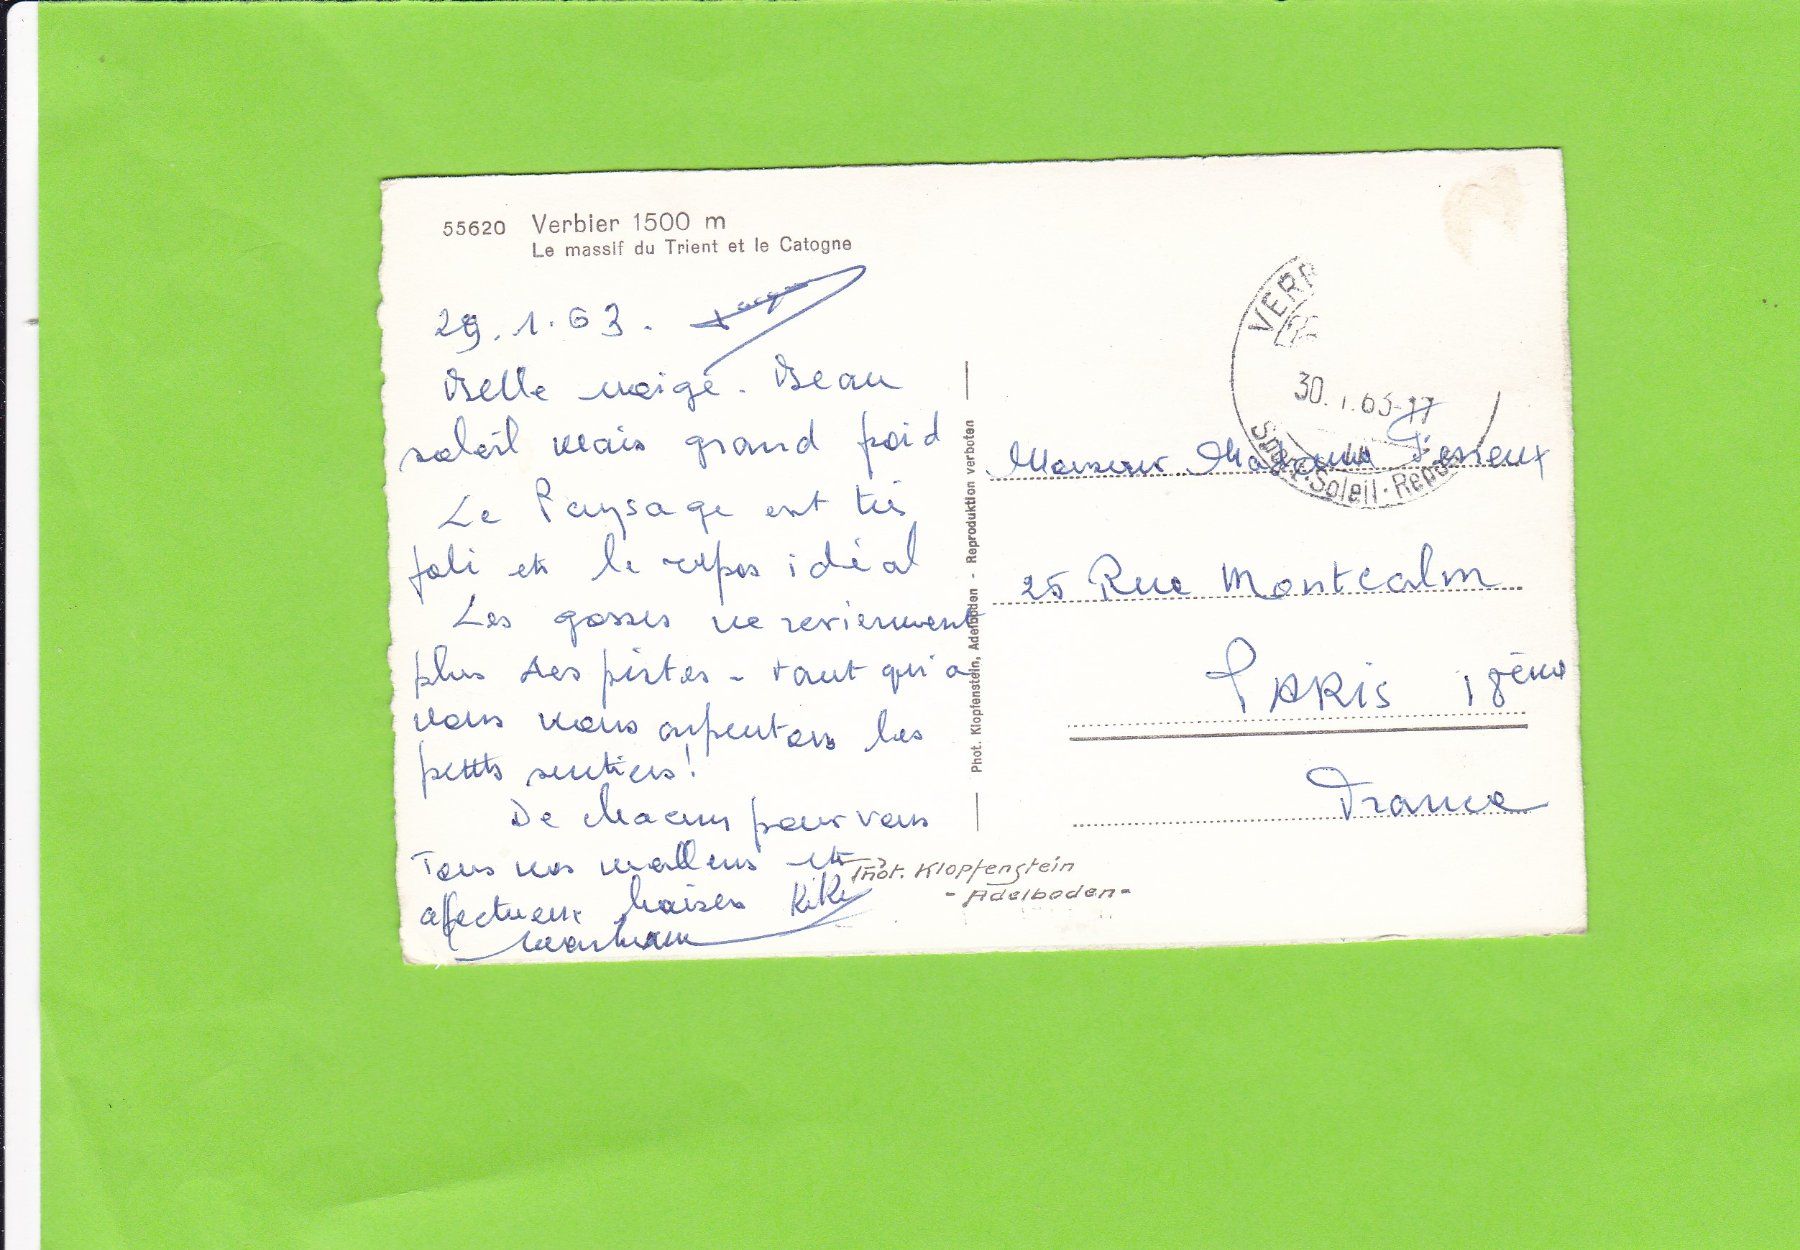 55620 Verbier 1500 m
Le massif du Trient et le Catogne
29.1.63.
Belle neige. Beau
soleil mais grand froid
Le Paysage est très
joli et le repos idéal
Les gosses ne reviennent
plus des pistes - tant qu'a
nous nous arpentons les
petits sentiers!
De chacun pour vous
Tous nos meilleurs et
afectueux baisers Kiki
Phot. Klopfenstein, Adelboden - Reproduktion verboten
Phot. Klopfenstein
- Adelboden -
VERB
30.1.63-17
Sport·Soleil·Repos
Monsieur Madame
25 Rue Montcalm
PARIS 18ème
France